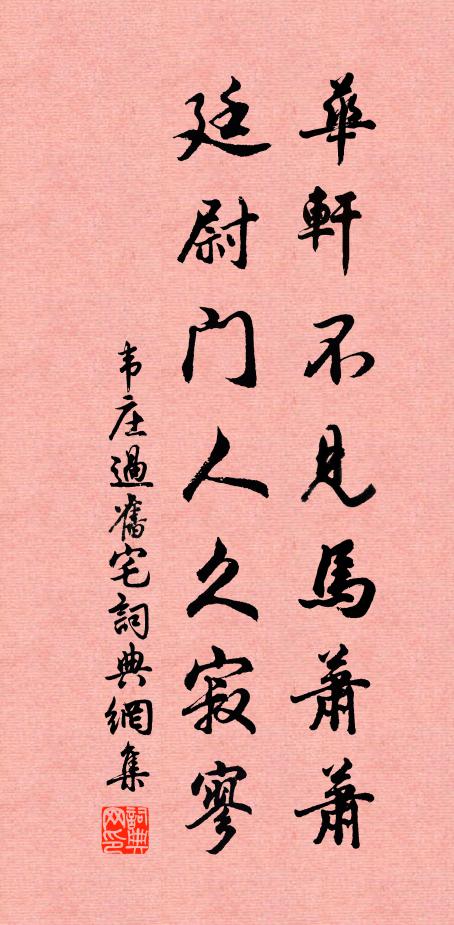 華軒不見馬蕭蕭
廷尉门人久寂寥
韦庄過舊宅詞典網集
詞典网印